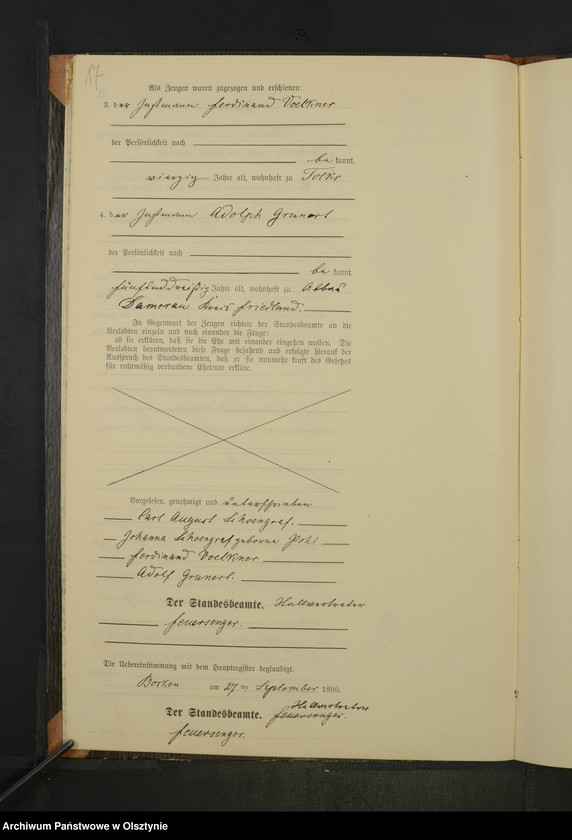 17
Als Zeugen waren zugezogen und erschienen:
3. der Instmann Ferdinand Voelkner
der Persönlichkeit nach
be kannt,
vierzig Jahre alt, wohnhaft zu Tolks
4. der Instmann Adolph Grunert
der Persönlichkeit nach
be kannt,
fünfunddreißig Jahre alt, wohnhaft zu Abbau
Damerau Kreis Friedland.
In Gegenwart der Zeugen richtete der Standesbeamte an die
Verlobten einzeln und nach einander die Frage:
ob sie erklären, daß sie die Ehe mit einander eingehen wollen. Die
Verlobten beantworteten diese Frage bejahend und erfolgte hierauf der
Ausspruch des Standesbeamten, daß er sie nunmehr kraft des Gesetzes
für rechtmäßig verbundene Eheleute erkläre.
Vorgelesen, genehmigt und unterschrieben
Carl August Schoengraf.
Johanna Schoengraf geborene Pohl
Ferdinand Voelkner
Adolf Grunert.
Der Standesbeamte. Stellvertreter
Feuersenger.
Die Uebereinstimmung mit dem Hauptregister beglaubigt.
Borken am 27 ten September 1890.
Der Standesbeamte. Stellvertreter
Feuersenger.
Feuersenger.
Archiwum Państwowe w Olsztynie